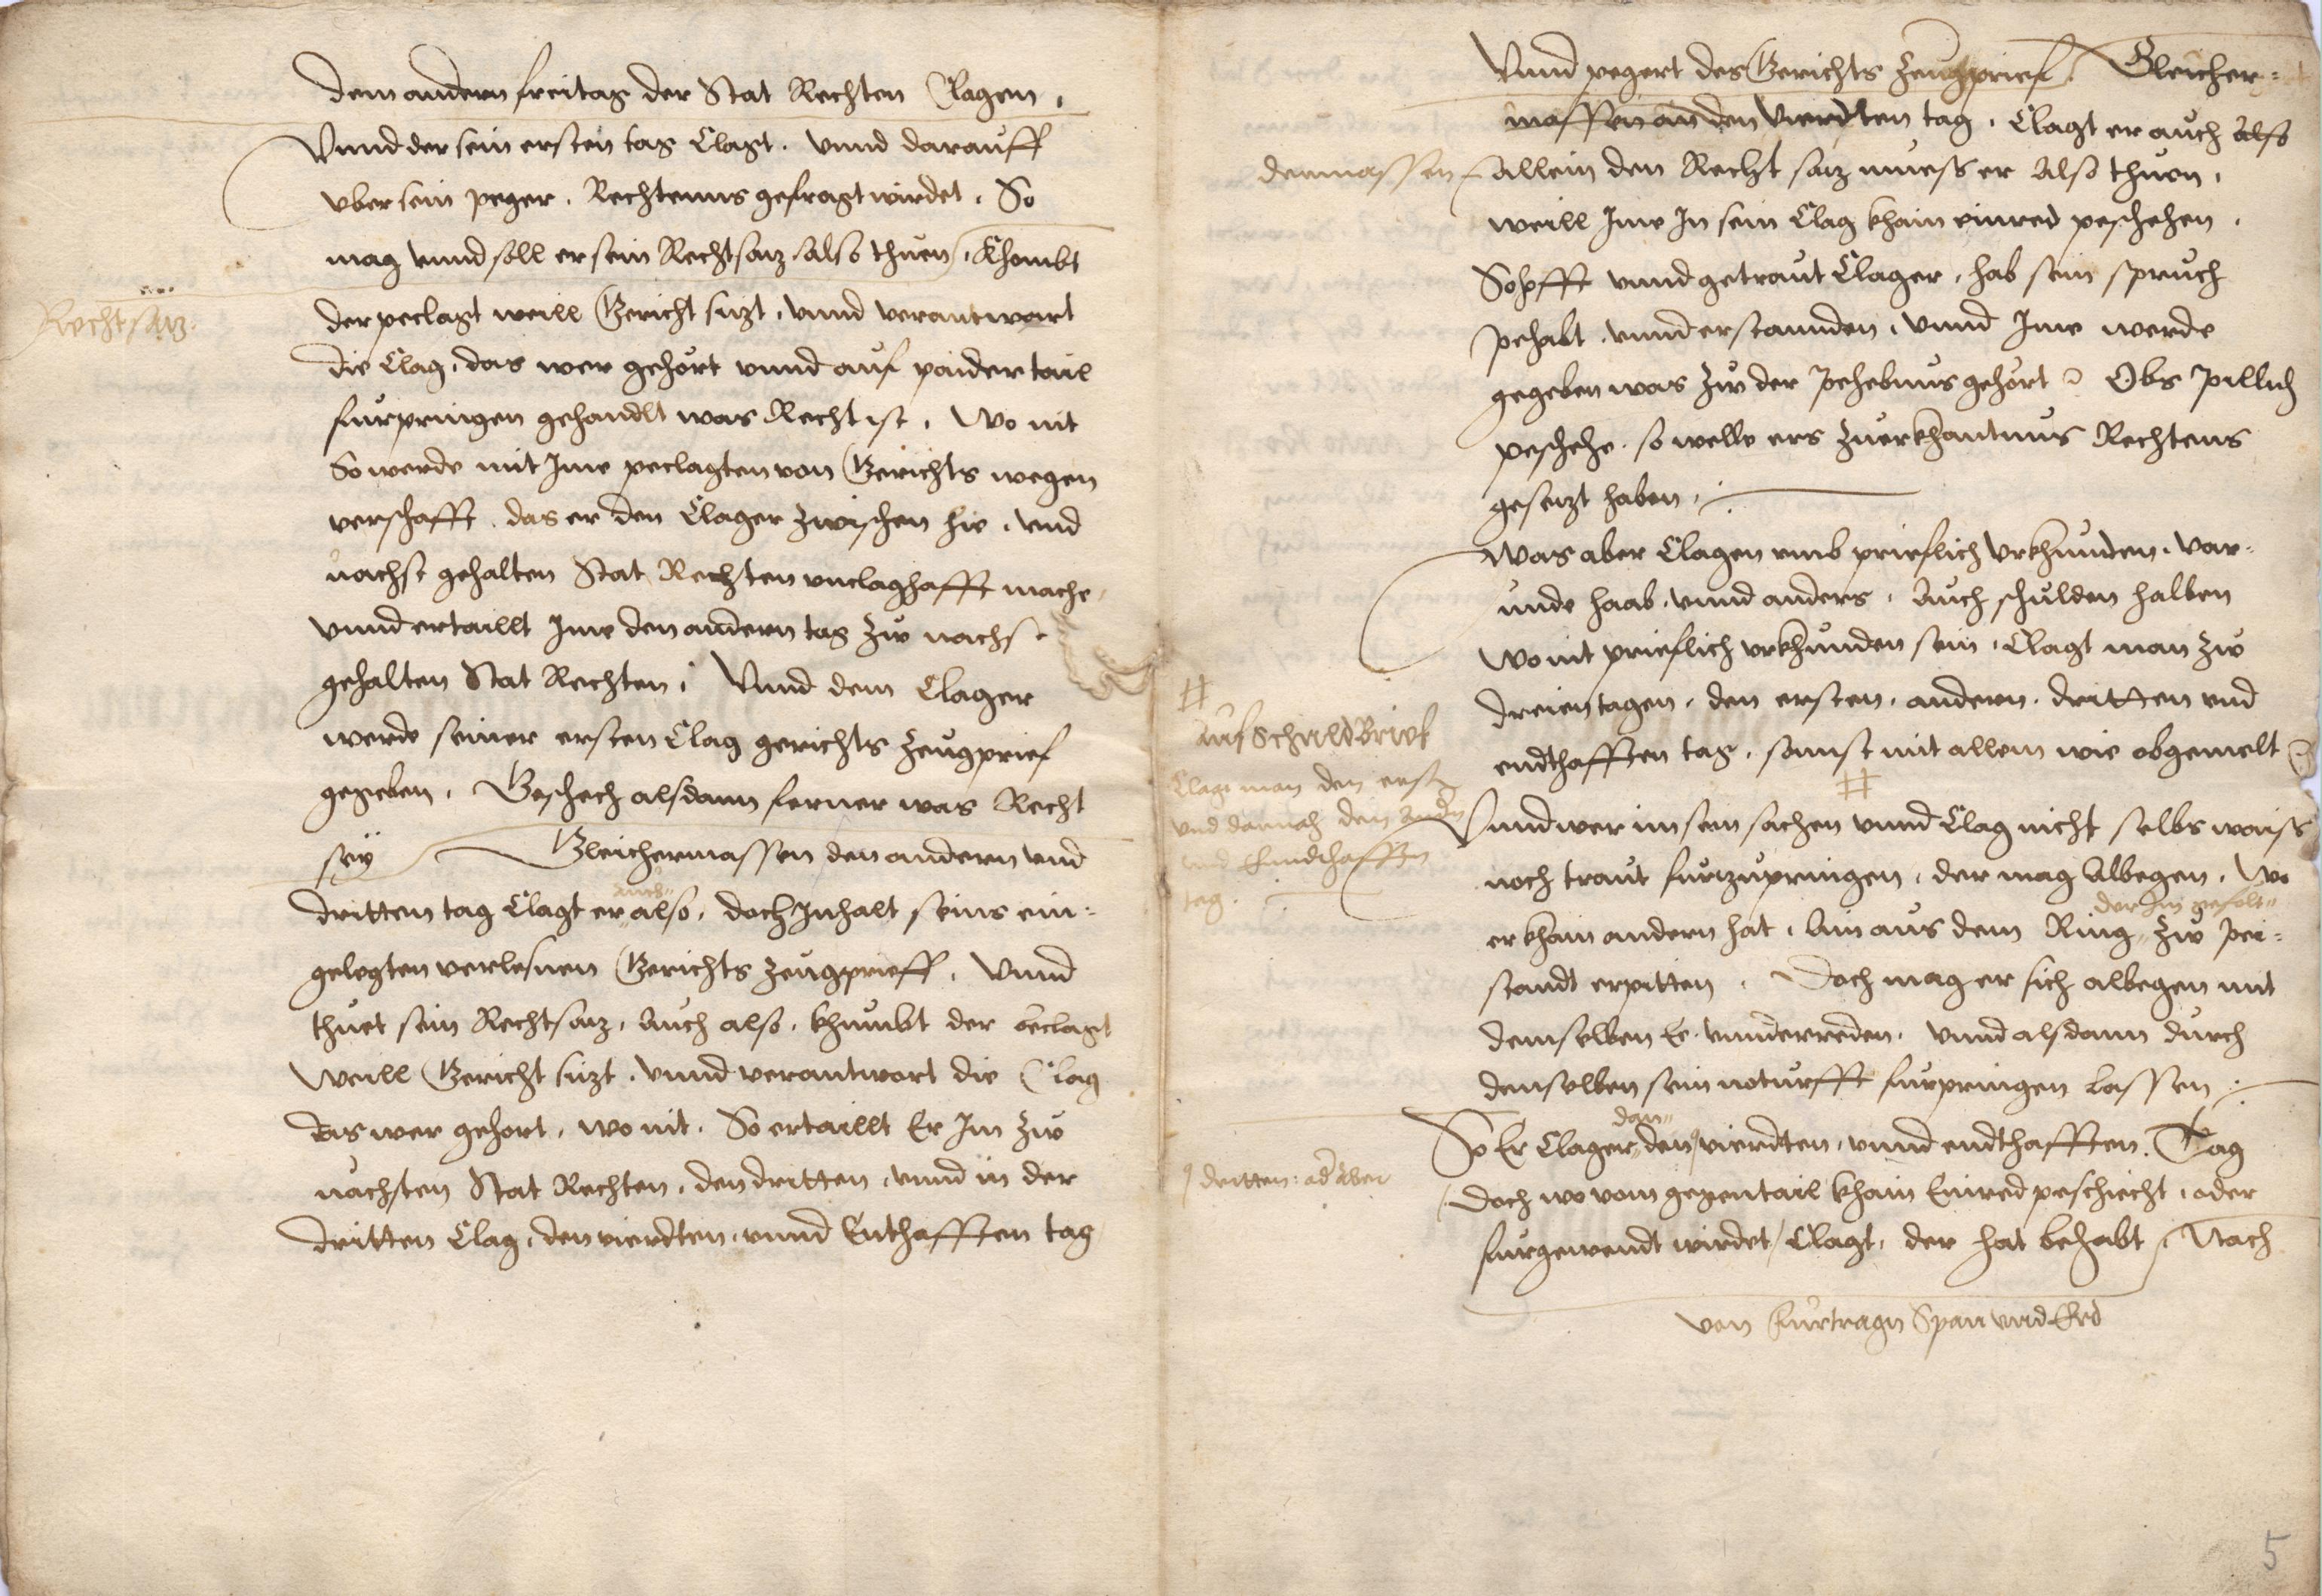 dem andern freitag der Stat Rechten Clagen,
Vnnd der sein ersten tag Clagt. vnnd darauff
vber sein peger. Rechtenns gefragt wirdet. So
mag vnnd soll er sein Rechtsaz also thuen, Khombt
Rechtsaz.
der peclagt weill Gericht sizt, vnnd verantwort
die Clag, das wer gehört vnnd auf paider tail
furpringen gehandlt was Recht ist. Wo nit
So werde mit Jme peclagten von Gerichts wegen
verschafft. das er den Clager zwischen hie. vnd
nachst gehalten Stat Rechten vnclaghafft mache,
vnnd ertaillt Jme den andern tag zw nachst
gehalten Stat Rechten, Vnnd dem Clager
werde seiner ersten Clag gerichts zeugprief
gegeben. Beschech alsdann ferner was Recht
seÿ Gleichermassen den andern vnd
auch
dritten tag Clagt er also, doch Jnhalt seins ein=
gelegten verlesnen Gerichts zeugprieff. Vnnd
thuet sein Rechtsaz, Auch also, khumbt der beclagt
Weill Gericht sizt. vnnd verantwort die Clag
das wer gehort, wo nit. So ertaillt Er Jm zw
nachsten Stat Rechten, den dritten, vnnd in der
dritten Clag, den vierdten, vnnd Enthafften tag
Vnnd pegert des Gerichts zeugprief. Gleicher=
massen an den Vierdten tag. Clagt er auch also
dermassen allein den Recht saz muess er Also thuen,
weill Jme Jn sein Clag khain einred peschehen.
So hofft vnnd getraut Clager, hab sein spruch
pehabt vnnd erstannden, vnnd Jme werde
gegeben was zw der pehebnus gehört Obs pillich
peschehe. so welle ers zuerkhantnus Rechtens
gesezt haben.
Was aber Clagen vmb prieflich vrkhunden. var=
unde haab. vnnd anders. Auch schulden halben
Wo nit prieflich vrkhunden sein, Clagt man zw
dreien tagen, den ersten, andern. dritten vnd
endthafften tag, sonnst mit allem wie obgemelt
#
Auf Schuld Brief
Clagt man den erstn
vnd darnach den Andn
vnd Enndthafften
tag.
#
Vnnd wer im sein sachen vnnd Clag nicht selbs waiss
noch traut furzupringen, der mag Albegen. Wo
der Jm gefelt
er khain andern hat, Ain aus dem Ring zw pei=
standt erpitten. Doch mag er sich albegen mit
demselben Er. vnnderreden. vnnd alsdann durch
denselben sein noturfft furpringen lassen
dan
So Er Clager den vierdten, vnnd endthafften. Tag
dritten: oder Aber
Doch wo vom gegentail khain Einred peschiecht, oder
furgewendt wirdet, Clagt, der hat behabt, Nach
von Furtragn Span vnd Erd
5